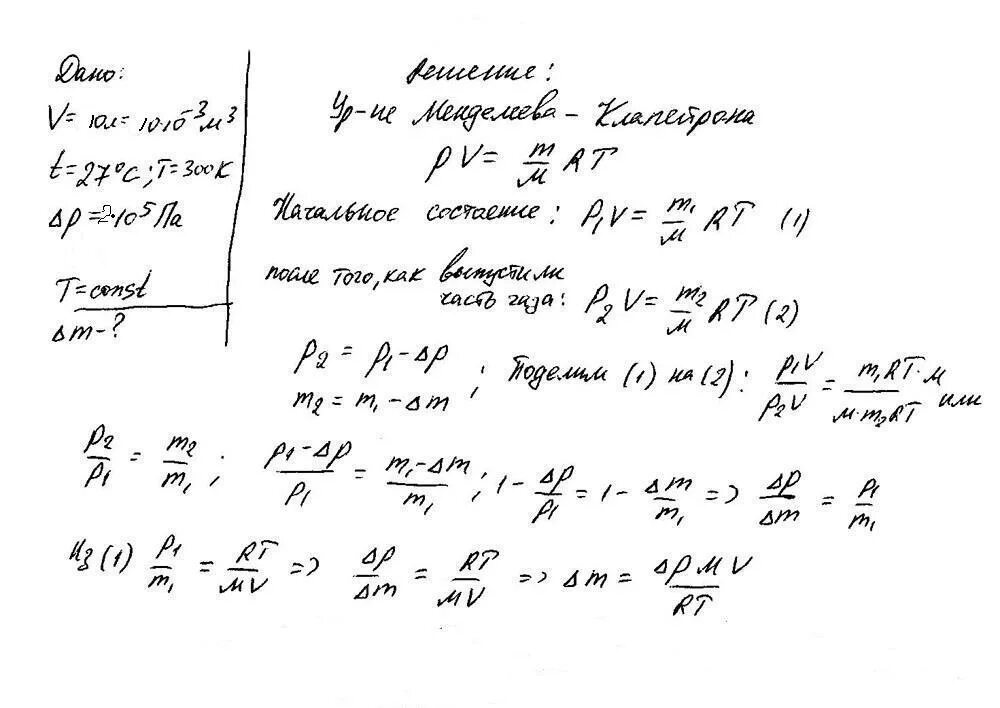 Дано:
V = 10л = 10·10⁻³ м³
t = 27°C; T = 300K
Δp = 2·10⁵ Па
T = const
Δm - ?
Решение:
Ур-не Менделеева – Клапейрона
pV = m/M RT
Начальное состоение: P₁V = m₁/M RT (1)
после того, как выпустили
часть газа: P₂V = m₂/M RT (2)
p₂ = p₁ - Δp
m₂ = m₁ - Δm ; Поделим (1) на (2): p₁V/p₂V = m₁RT·M/M·m₂RT или
p₂/p₁ = m₂/m₁ ; p₁-Δp/p₁ = m₁-Δm/m₁ ; 1 - Δp/p₁ = 1 - Δm/m₁ => Δp/Δm = p₁/m₁
Из (1) p₁/m₁ = RT/MV => Δp/Δm = RT/MV => Δm = ΔpMV/RT